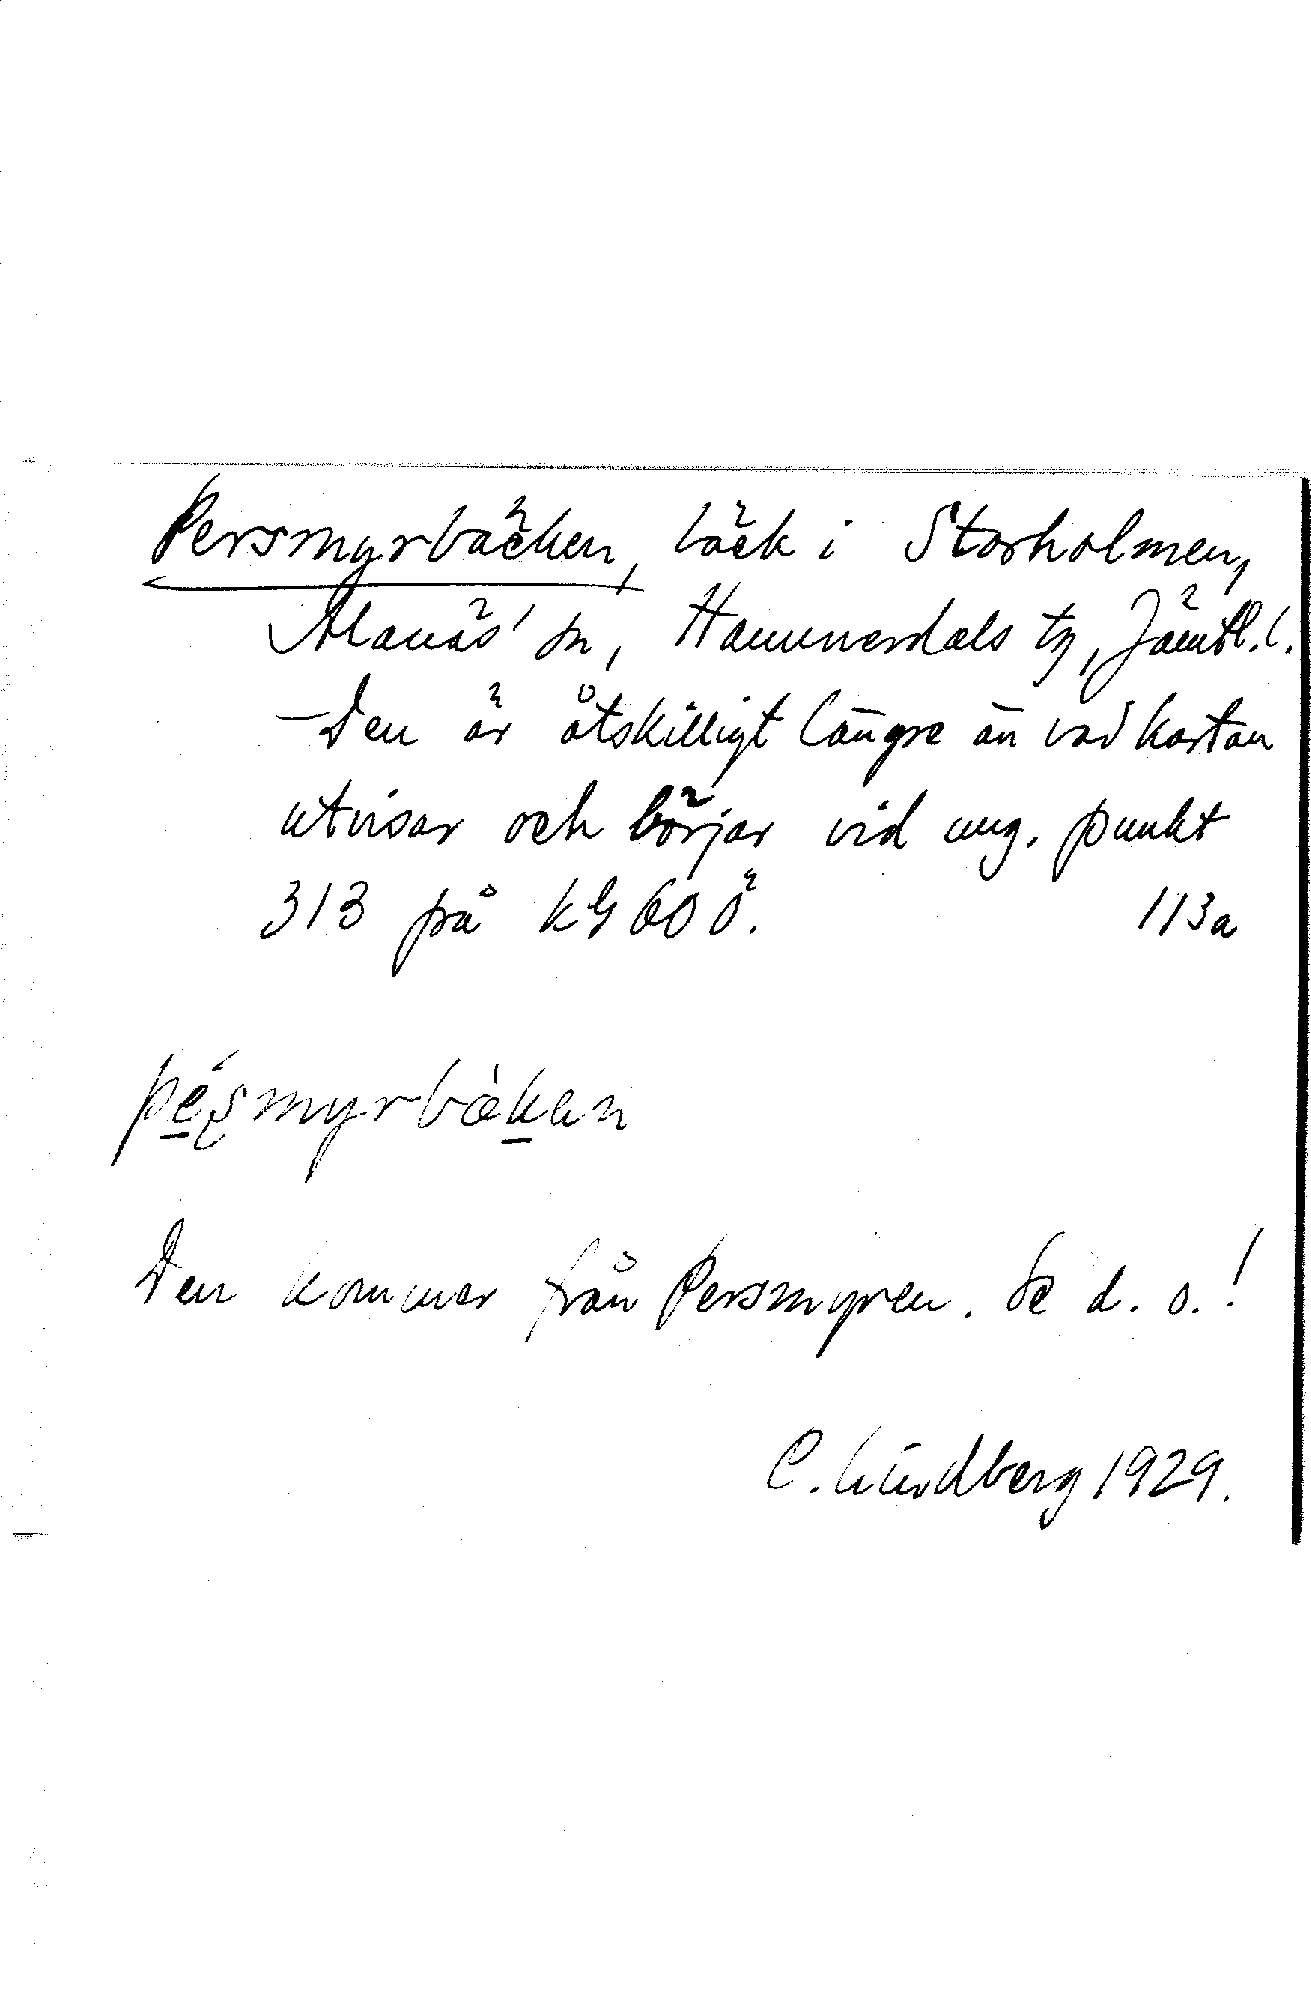 Persmyrbäcken, bäck i Storholmen,
Alanäs' sn, Hammerdals tg, Jämtl. l.
—Den är åtskilligt längre än vad kartan
utvisar och börjar vid ung. punkt
313 på kG 60 Ö. 113a
pésmyrbækan
Den kommer från Persmyren. Se d. o.!
C. Lindberg 1929.